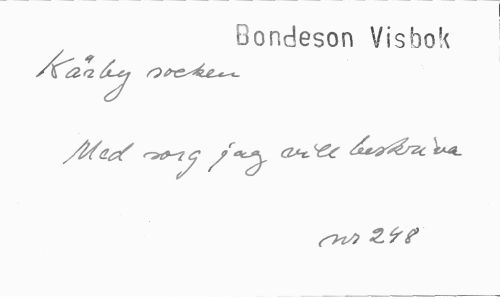 Bondeson Visbok
Kärby socken
Med sorg jag vill beskriva
nr 248